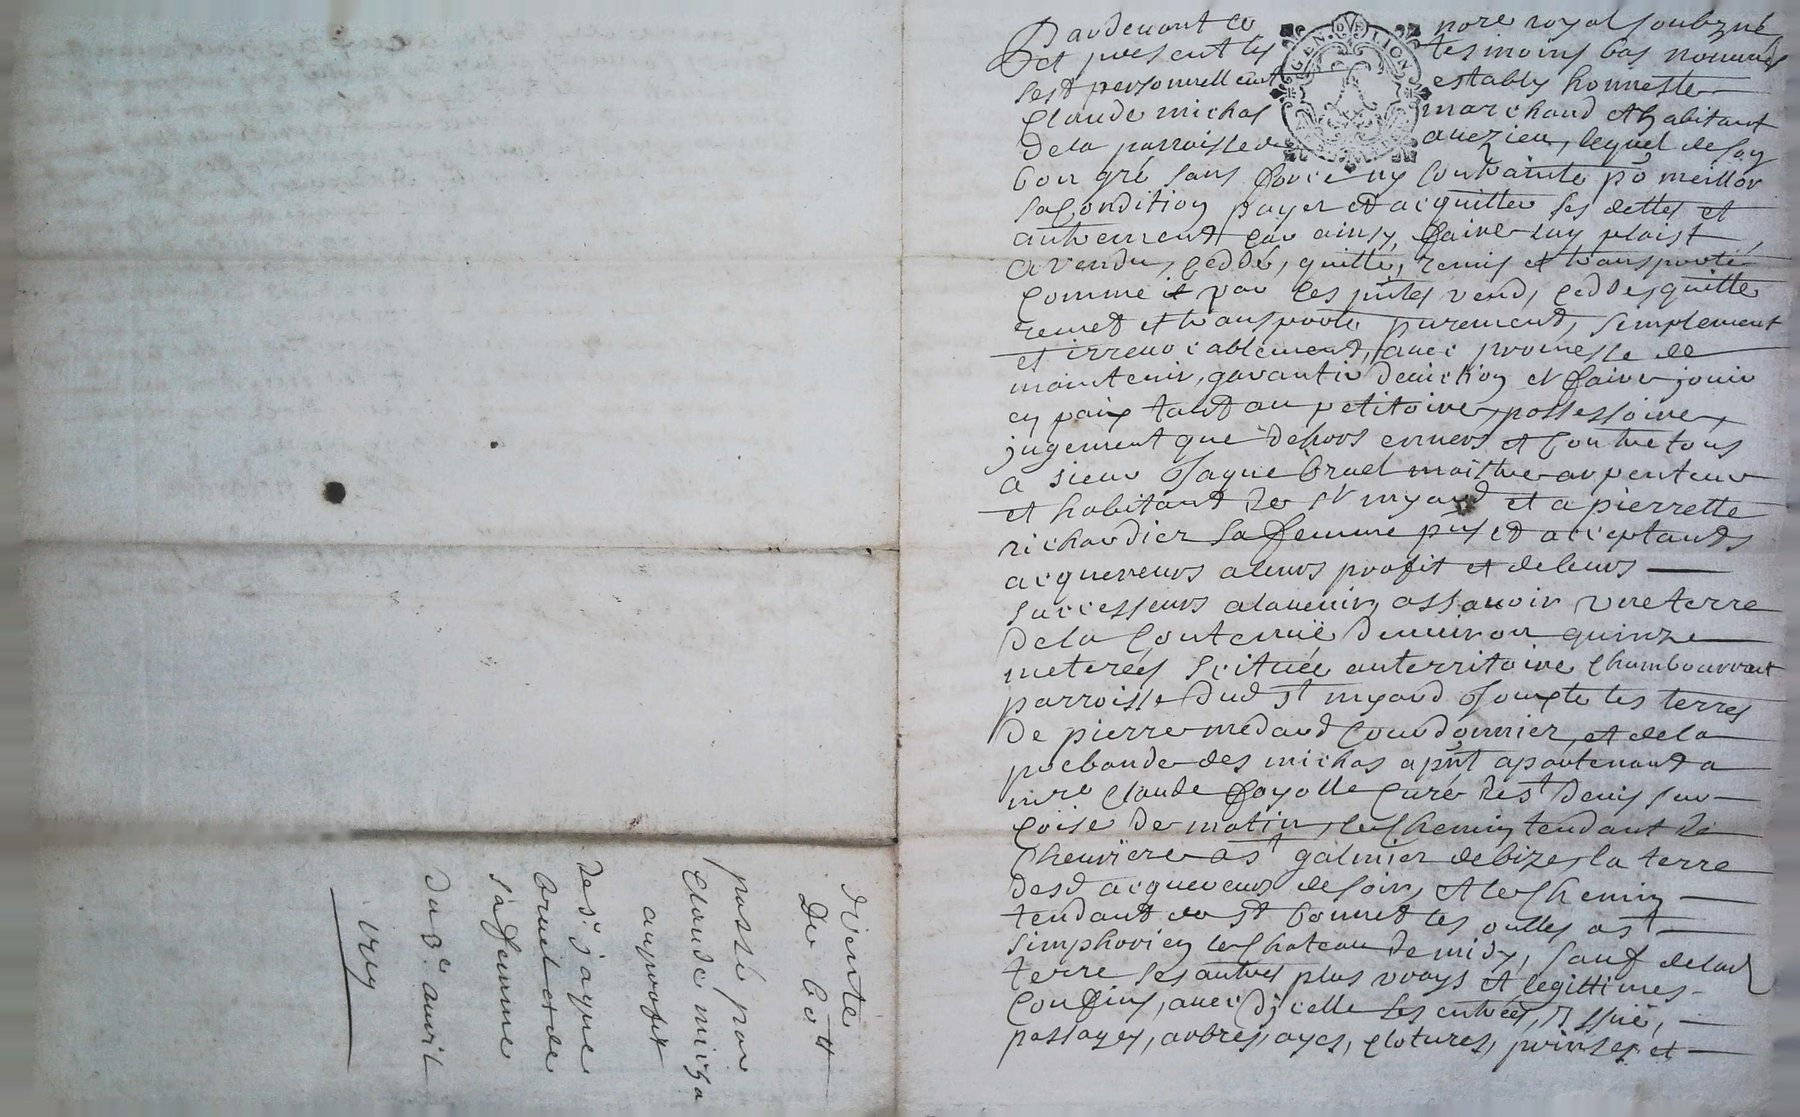 Pardevant le nore royal soubzné
et presents les tesmoins bas nommés
s'est personnellemt estably honneste
Claude michas marchand et habitant
de la parroisse d avezieu, lequel de son
bon gré sans force ny contrainte po meillor
sa condition payer et acquitter ses dettes et
autrement par ainsy faire luy plaist
a vendu, ceddé, quitté, remis et transporté
comme il par ces pntes vend, cedde, quitte
remet et transporte purement, simplement
et irrevocablement, avec promesse de
maintenir, garantir deviction et faire jouir
en paix tant au petitoire, possessoire,
jugement que dehors envers et contre tous
a sieur Jaque bruel maitre arpenteur
et habitant de St myard et a pierrette
richardier sa femme pnts et acceptants
acquereurs a leurs proffit et de leurs
successeurs a lavenir, assavoir une terre
de la contenuë denviron quinze
meterées scituée au territoire Chambourrant
parroisse dud St myard Jouxte les terres
de pierre medard Courdonnier, et de la
prebande des michas a pnt apartenant a
mre Claude fayolle Curé de St Denis sur
Coise de matin, le chemin tendant de
Cheuriere a St galmier de bize, la terre
desd acquereurs de soir, et le chemin
tendant de St bonnet les oulles a St
simphorien le Chateau de midy, sauf de lad
terre ses autres plus vrays et legittimes
Confins, avec dicelle ses entrées, issuë,
passages, arbres, ayes, clotures, prinses et
Vente
De 60 ₶
passé par
Claude micha
au proffit
de Sr jayne
bruel et de
sa femme
Du 8e avril